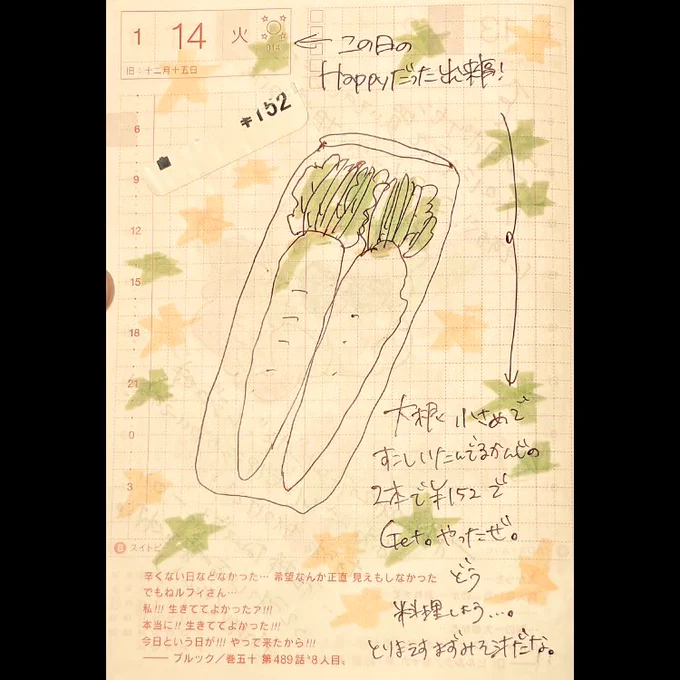 1 14 火
014
旧:十二月十五日
この日の
Happyだった出来事!
¥152
6
9
12
15
18
21
0
3
大根 小さめで
すこしいたんでるかんじの
2本で¥152で
Get。やったぜ。
どう
料理しよう…。
とりまえずまずみそ汁だな。
スイトピ
辛くない日などなかった… 希望なんか正直 見えもしなかった
でもねルフィさん…
私!!! 生きててよかったァ!!!
本当に!! 生きててよかった!!!
今日という日が!!! やって来たから!!!
―― ブルック/巻五十 第489話“8人目〟